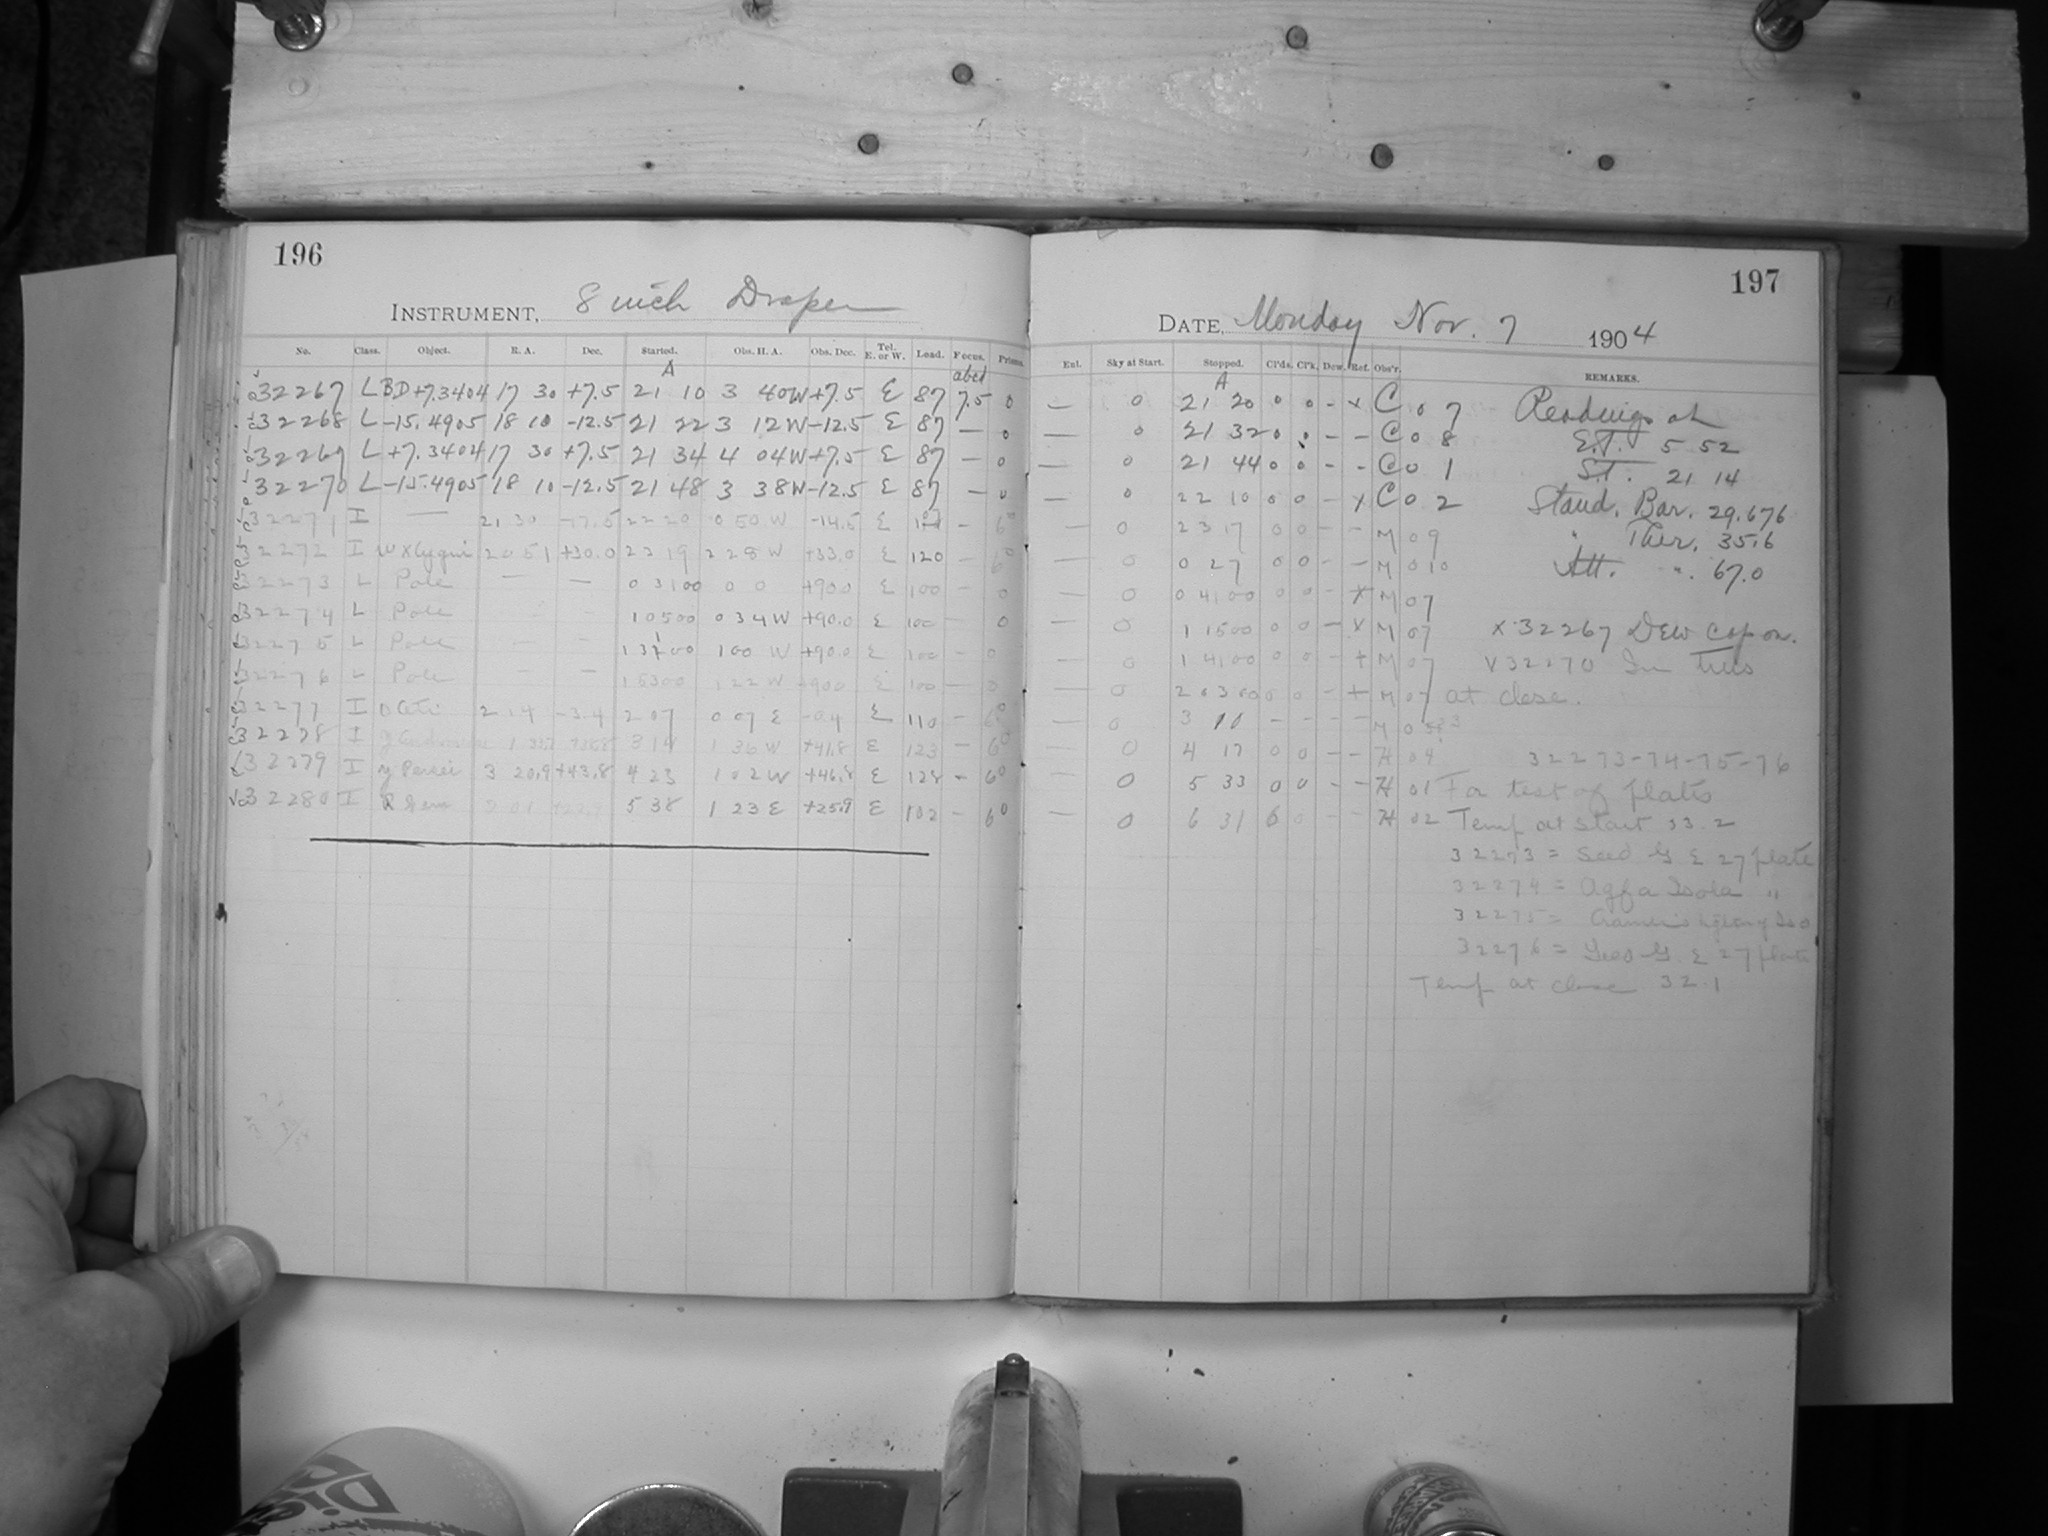 196
INSTRUMENT, 8 inch Draper
No. Class. Object. R. A. Dec. Started. Obs. H. A. Obs. Dec. Tel. E. or W. Load. Focus. Prisms
A abcd
32267 L BD+7.3404 17 30 +7.5 21 10 3 40W +7.5 E 87 7.5 0
32268 L -15.4905 18 10 -12.5 21 22 3 12W -12.5 E 87 — 0
32269 L +7.3404 17 30 +7.5 21 34 4 04W +7.5 E 87 — 0
32270 L -15.4905 18 10 -12.5 21 48 3 38W -12.5 E 87 — 0
32271 I — 21 30 -17.5 22 20 0 50 W -14.5 E — 6°
32272 I 20 51 +30.0 22 19 2 28 W +33.0 E 120 — 6°
32273 L Pole — — 0 31 00 0 0 +90.0 E 100 — 0
32274 L Pole — — 1 05 00 0 34 W +90.0 E 100 — 0
32275 L Pole — — 1 31 00 1 00 W +90.0 E 100 — 0
32276 L Pole — — 1 53 00 1 22 W +90.0 E 100 — 0
32277 I o Ceti 2 14 -3.4 2 07 0 07 E -0.4 E 110 — 6°
32278 I 3 14 1 36 W +41.8 E 123 — 6°
32279 I Persei 3 20.9 +43.8 4 23 1 02 W +46.8 E 128 — 6°
32280 I R Gem 5 38 1 23 E +25.9 E 102 — 6°
197
DATE, Monday Nov. 7 1904
Ent. Sky at Start. Stopped. Cl'ds. Cl'k. Dew. Ref. Obs'r. REMARKS.
A
— 0 21 20 0 0 - x C 07 Readings at
— 0 21 32 0 0 - - C 08 E.T. 5 52
— 0 21 44 0 0 - - C 01 S.T. 21 14
— 0 22 10 0 0 - x C 02 Stand. Bar. 29.676
— 0 23 17 0 0 - - M 09 " Ther. 35.6
— 0 0 27 0 0 - - M 010 Att. " 67.0
— 0 0 41 00 0 0 - x M 07
— 0 1 15 00 0 0 - x M 07 x 32267 Dew cap on.
— 0 1 41 00 0 0 - + M 07 v 32270 In trees
— 0 2 03 00 0 0 - + M 07 at close.
— 0 3 10 - - - - M
— 0 4 17 0 0 - - H 04 32273-74-75-76
— 0 5 33 0 0 - - H 01 For test of plates
— 0 6 31 6 0 - - H 02 Temp at start 33.2
32273 = Seed G E 27 plate
32274 = Agfa Isola "
32275 = Cramer's Iso
32276 = Seed G. E 27 plate
Temp at close 32.1